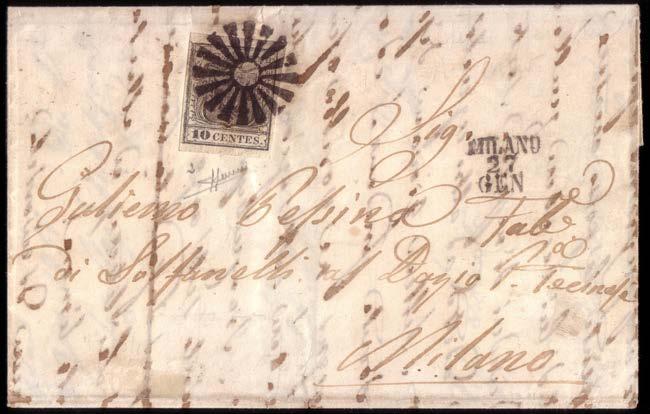 10 CENTES.
Sig.
MILANO
27
GEN
Gulielmo Cessina Fab.e
di Solfanelli al Dazio P.a Ticinese
Milano